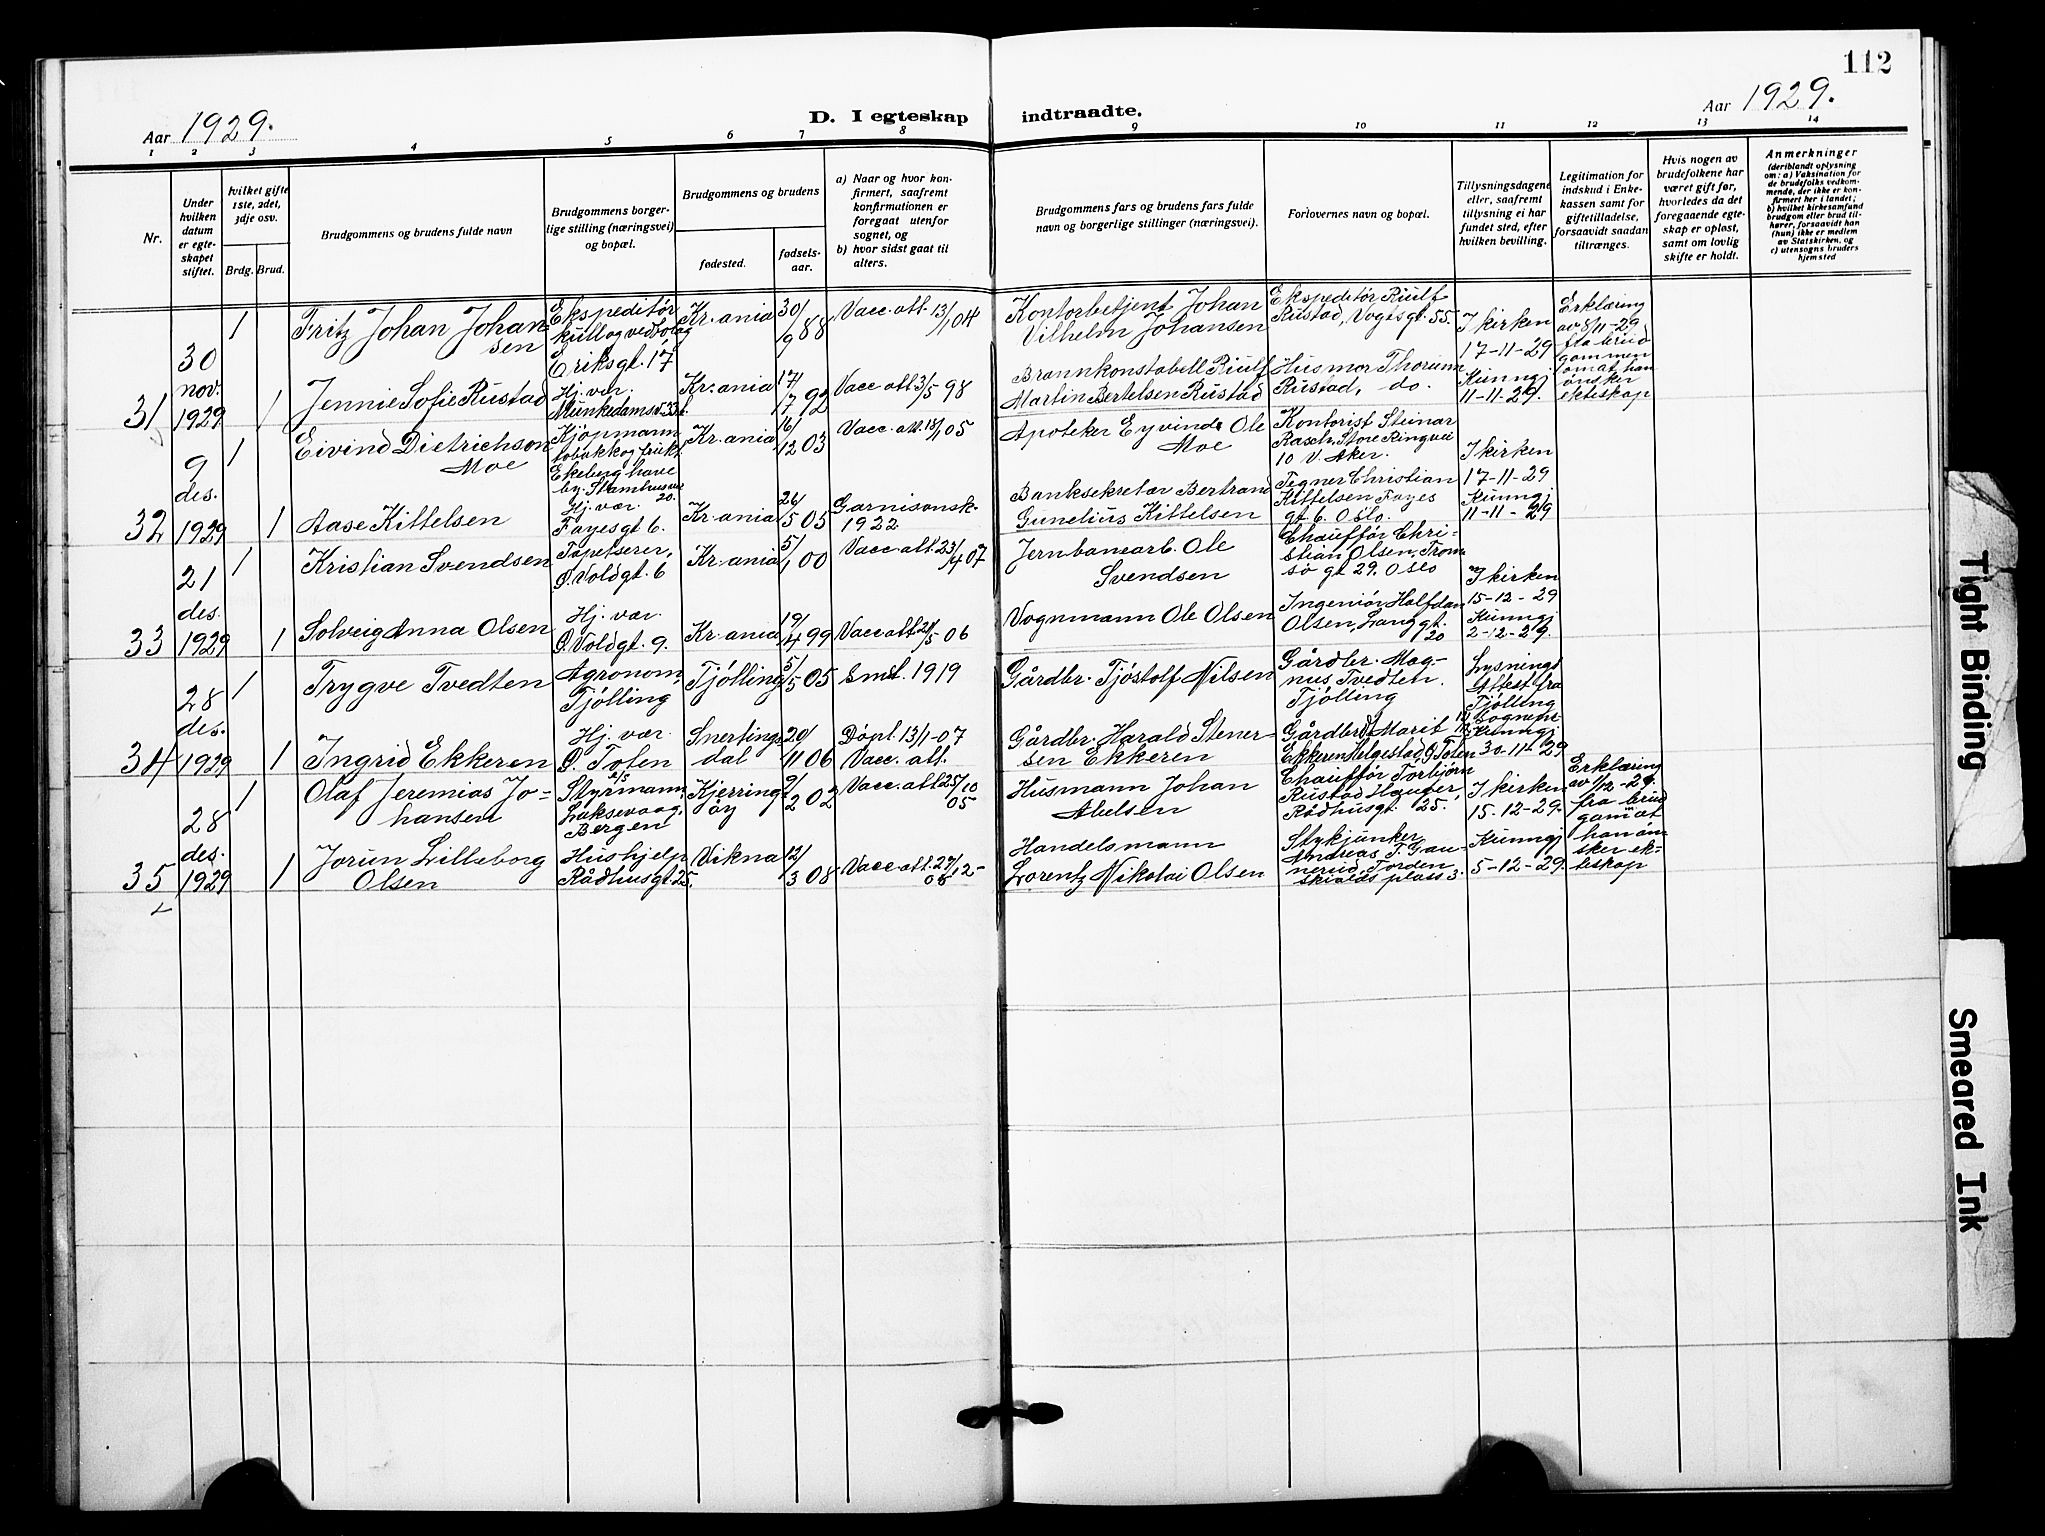 112
Aar 1929.
D. I egteskap indtraadte.
Aar 1929.
1 2 3 4 5 6 7 8 9 10 11 12 13 14
Nr.
Under hvilken datum er egteskapet stiftet.
hvilket gifte 1ste, 2det, 3dje osv.
Brdg. Brud.
Brudgommens og brudens fulde navn
Brudgommens borgerlige stilling (næringsvei) og bopæl.
Brudgommens og brudens
fødested.
fødselsaar.
a) Naar og hvor konfirmert, saafremt konfirmationen er foregaat utenfor sognet, og
b) hvor sidst gaat til alters.
Brudgommens fars og brudens fars fulde navn og borgerlige stillinger (næringsvei).
Forlovernes navn og bopæl.
Tillysningsdagene eller, saafremt tillysning ei har fundet sted, efter hvilken bevilling.
Legitimation for indskud i Enkekassen samt for giftetilladelse, forsaavidt saadan tiltrænges.
Hvis nogen av brudefolkene har været gift før, hvorledes da det foregaaende egteskap er opløst, samt om lovlig skifte er holdt.
Anmerkninger
(deriblandt oplysning om: a) Vaksination for de brudefolks vedkommende, der ikke er konfirmert her i landet; b) hvilket kirkesamfund brudgom eller brud tilhører, forsaavidt han (hun) ikke er medlem av Statskirken, og c) utensogns bruders hjemsted
31
30
nov.
1929
1
Fritz Johan Johansen
Ekspeditør
kull og vedbolag
Eriksgt. 17
Kr.ania
30/9 88
Vacc. att. 13/1 04
Kontorbetjent Johan
Vilhelm Johansen
Ekspeditør Riulf
Rustad, Vogtsgt. 55.
I kirken
17-11-29
Erklæring
av 8/11-29
fra brud
gommen
om at han
ønsker
ekteskap
1
Jennie Sofie Rustad
Hj. vær.
Munkedamsv. 33
Kr.ania
17/17 92
Vacc att 3/5 98
Brannkonstabell Riulf
Martin Bertelsen Rustad
Husmor Thorunn
Rustad, do.
Kunngj
11-11-29.
32
9
des.
1929
1
Eivind Dietrichson
Moe
Kjøpmann
tobakk og frukt
Ekeberg have
by. Stamhusvei
20.
Kr.ania
16/12 03
Vacc. att. 18/1 05
Apoteker Eyvind Ole
Moe
Kontorist Steinar
Rasch, Store Ringvei
10 V. Aker.
I kirken
17-11-29
1
Aase Kittelsen
Hj. vær
Fayesgt 6.
Kr.ania
26/5 05
Garnisonsk.
1922
Banksekretær Bertrand
Gunelius Kittelsen
Tegner Christian
Kittelsen Fayes
gt. 6. Oslo.
Kunngj
11-11-29
33
21
des.
1929
1
Kristian Svendsen
Tapetserer,
Ø. Voldgt. 6
Kr.ania
5/1 00
Vacc. att. 23/4 07
Jernbanearb. Ole
Svendsen
Chauffør Chri-
stian Olsen, Trom
sø gt 29. Oslo
I kirken
15-12-29
1
Solveig Anna Olsen
Hj. vær.
Ø. Voldgt. 9.
Kr.ania
19/4 99
Vacc att 21/5 06
Vognmann Ole Olsen
Ingeniør Halfdan
Olsen, Langgt.
20
Kunngj
2-12-29.
34
28
des.
1929
1
Trygve Tvedten
Agronom,
Tjølling
Tjølling
5/5 05
Smst. 1919
Gårdbr. Tjøstolf Nilsen
Gårdbr. Mag-
nus Tvedten.
Tjølling
Lysnings
Attest fra
Tjølling
sognepr
1
Ingrid Ekkeren
Hj. vær
Ø. Toten
Snertings
dal
20/11 06
Døpt. 13/1-07
Vacc. att.
Gårdbr. Harald Stener-
sen Ekkeren
Gårdbr. Marit
Ekkeren Helgestad, Ø Toten
Kunngj
30-11-29
35
28
des.
1929
1
Olaf Jeremias Jo=
hansen
Styrmann
Laksevaag,
Bergen
Kjerring
øy
9/2 02
Vacc att 25/10
05
Husmann Johan
Abelsen
Chauffør Torbjørn
Rustad Hauger,
Rådhusgt. 25.
I kirken
15-12-29.
Erklæring
av 1/12-29.
fra brud
gom at
han øn-
sker ek-
teskap
1
Jorun Lilleborg
Olsen
Hushjelp
Rådhusgt 25.
Vikna
12/3 08
Vacc att. 27/12-
08
Handelsmann
Lorentz Nikolai Olsen
Stykjunker
Andreas T. Gau-
nerud, Torden
skiolds plass 3.
Kunngj
5-12-29.
Tight Binding
Smeared Ink